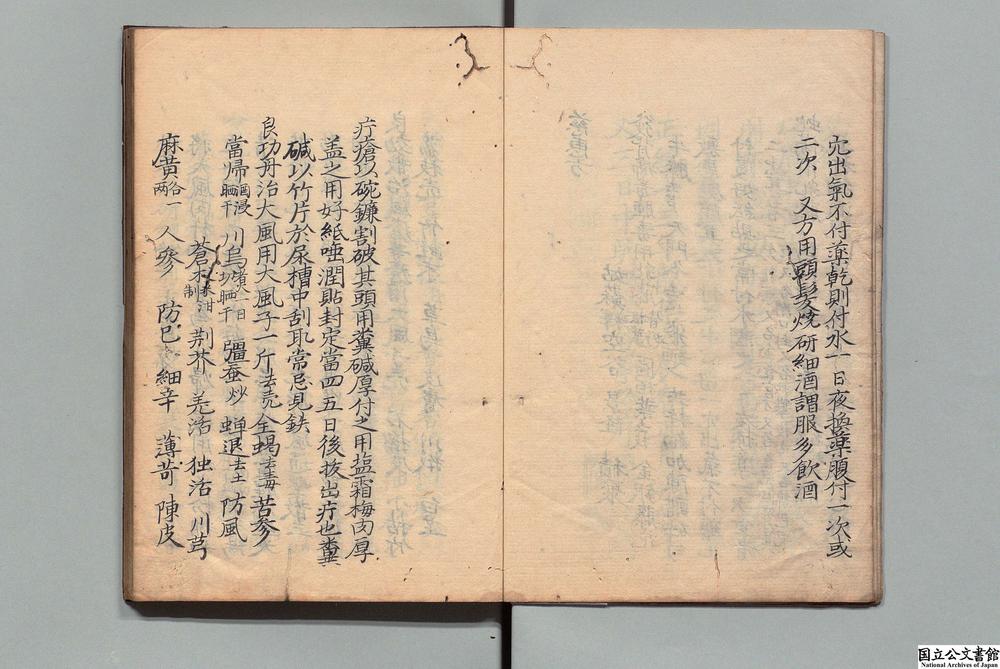 宂出氣不付藥乾則付水一日夜換藥腹付一次或
二次　又方用頭髮燒研細酒調服多飲酒
疔瘡以碗鐮割破其頭用糞碱厚付之用塩霜梅肉厚
盖之用好紙唾潤貼封定當四五日後拔出疔也糞
碱以竹片於尿槽中刮取常忌見鉄
良功丹治大風用大風子一斤去壳全蝎去毒苦參
當歸酒浸晒干川烏煑一日切晒干殭蚕炒蝉退去土防風
蒼朮米泔制荆芥羌活独活川芎
麻黄各一两人參防已細辛薄苛陳皮
国立公文書館
National Archives of Japan